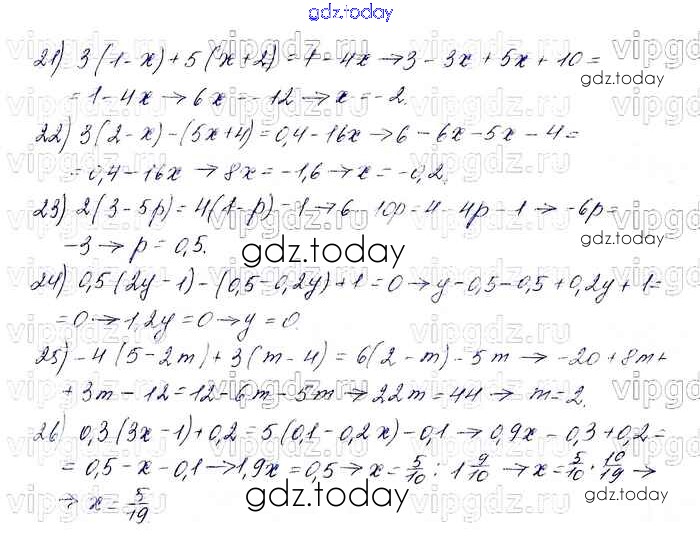 gdz.today
21) 3(1-x)+5(x+2)=1-4x→3-3x+5x+10=
=1-4x→6x=-12→x=-2.
22) 3(2-x)-(5x+4)=0,4-16x→6-6x-5x-4=
=0,4-16x→8x=-1,6→x=-0,2.
23) 2(3-5p)=4(1-p)-1→6-10p=4-4p-1→-6p=
-3→p=0,5.
24) 0,5(2y-1)-(0,5-0,2y)+1=0→y-0,5-0,5+0,2y+1=
=0→1,2y=0→y=0.
25) -4(5-2m)+3(m-4)=6(2-m)-5m→-20+8m+
+3m-12=12-6m-5m→22m=44→m=2.
26) 0,3(3x-1)+0,2=5(0,1-0,2x)-0,1→0,9x-0,3+0,2=
=0,5-x-0,1→1,9x=0,5→x=5/10:1 9/10→x=5/10·10/19→
→x=5/19.
gdz.today
gdz.today
gdz.today
gdz.today
gdz.today
gdz.today
vipgdz.ru